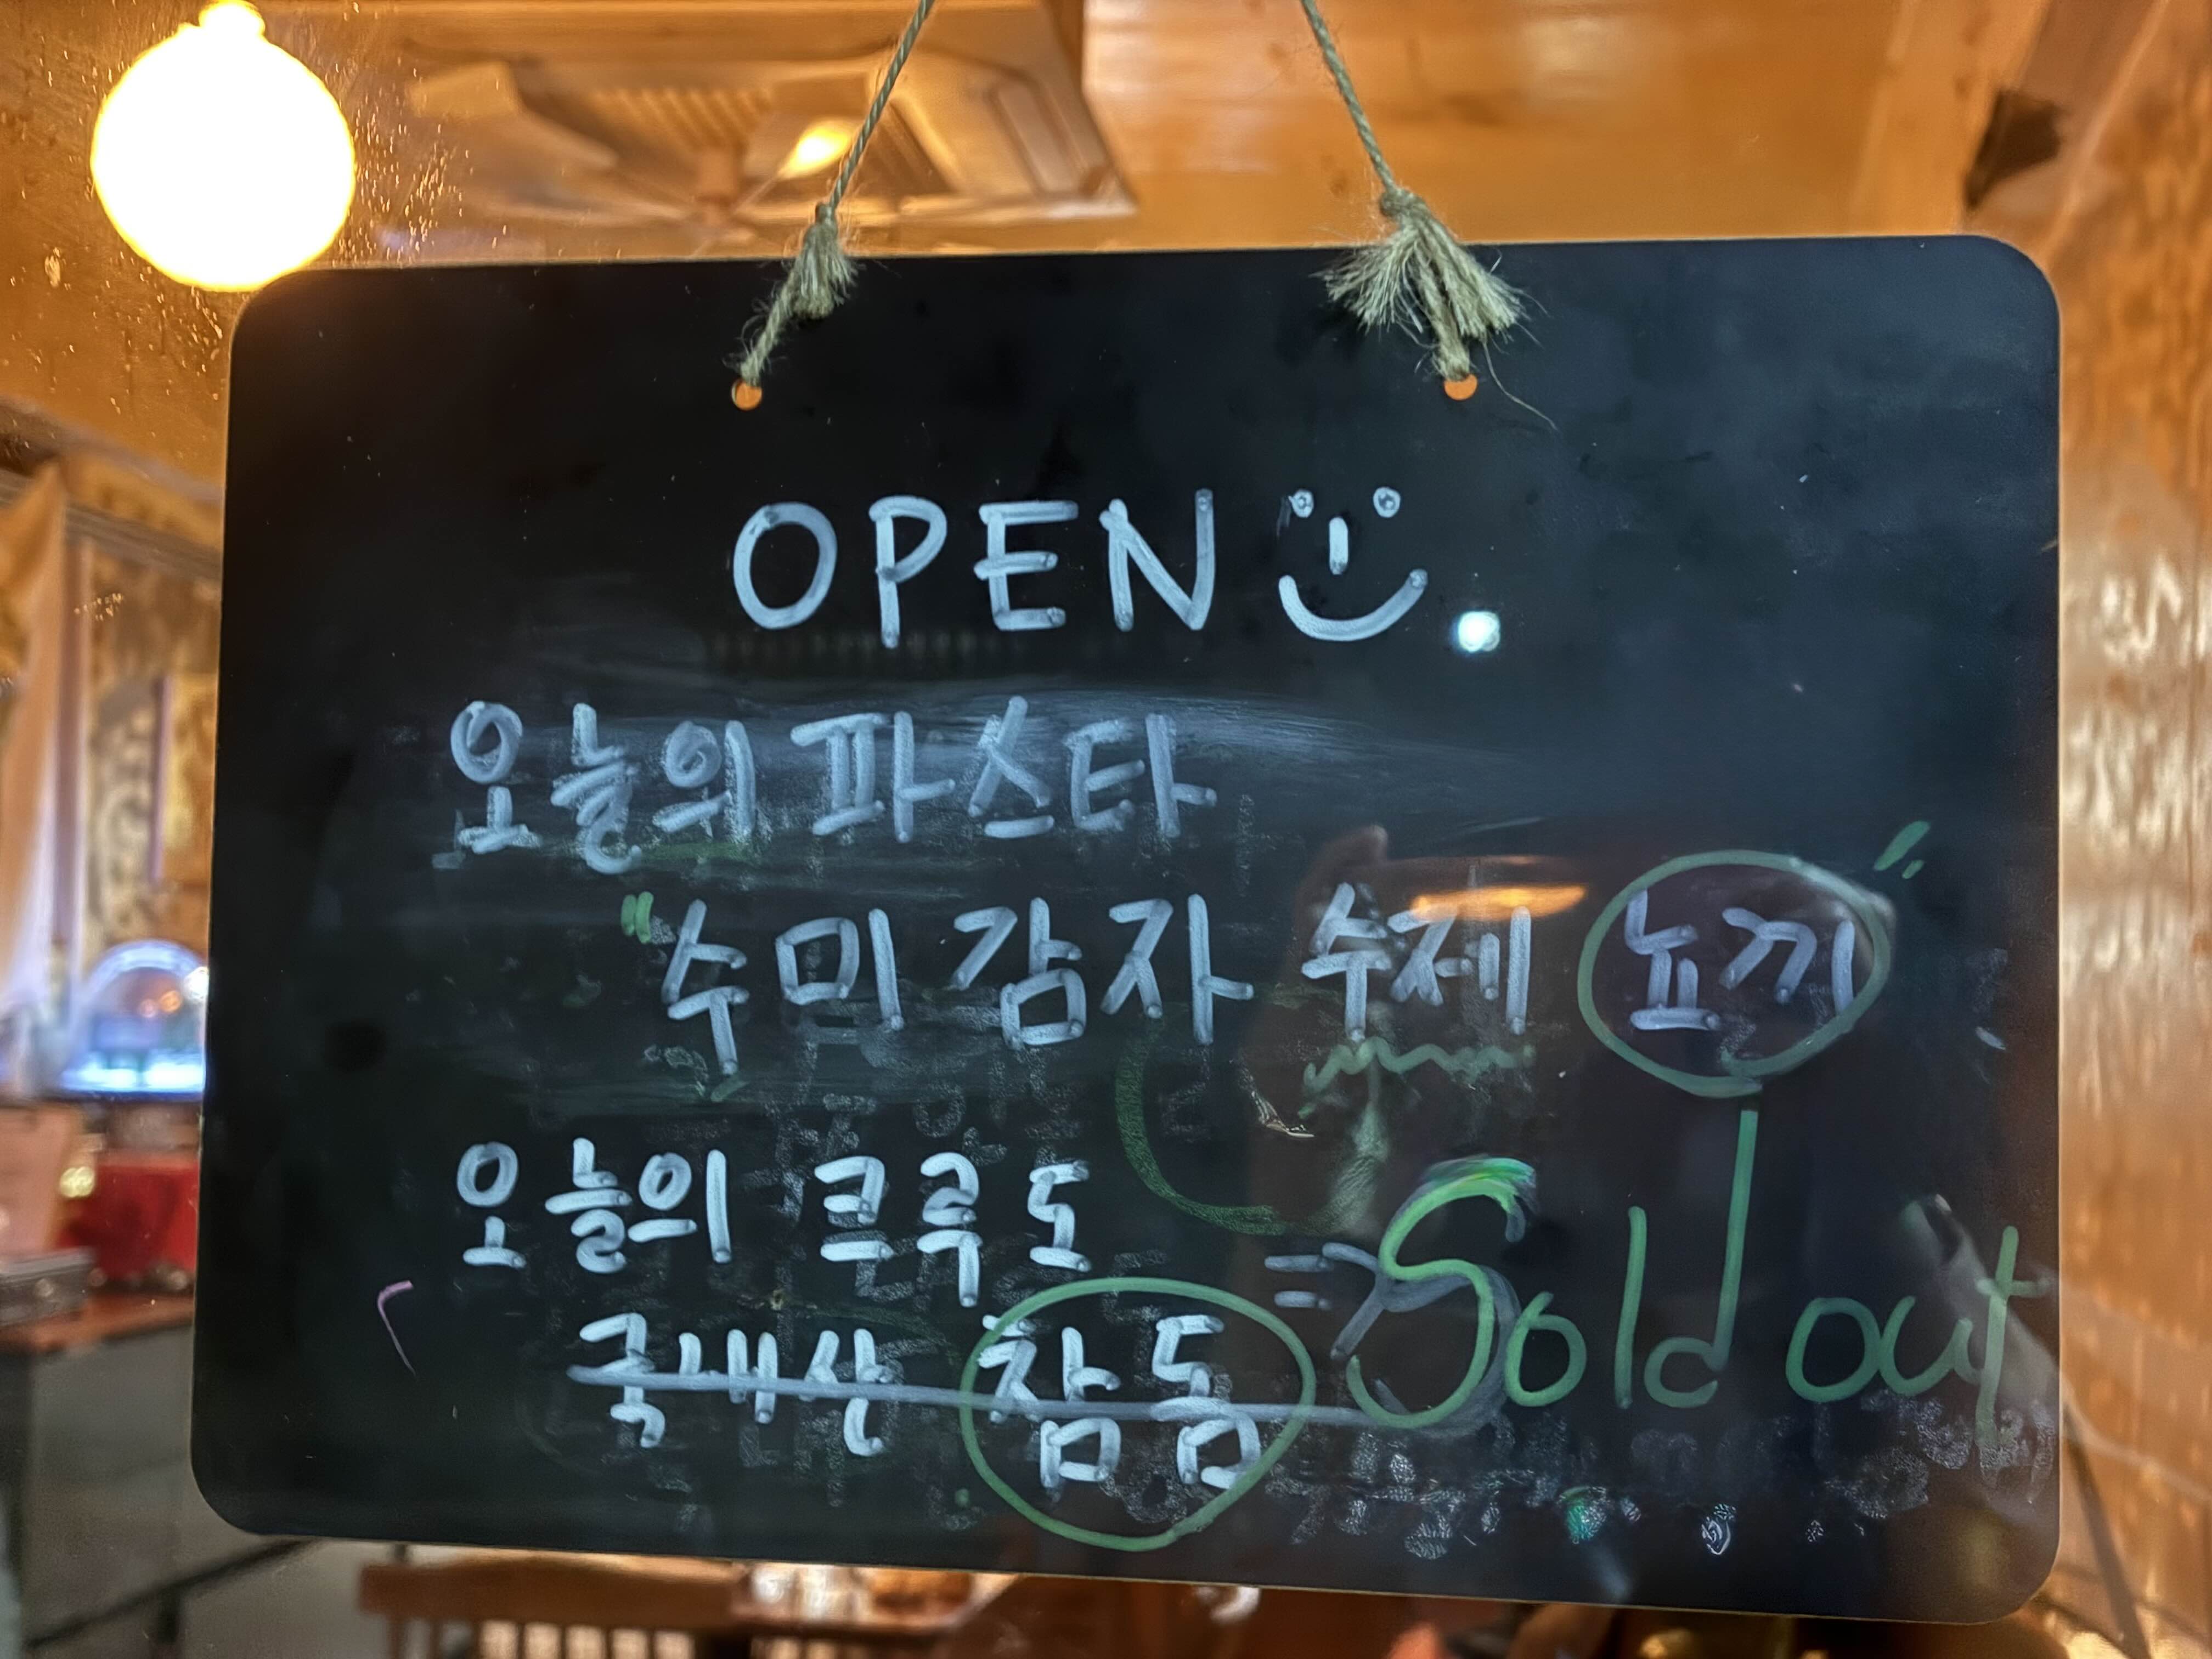 OPEN
오늘의 파스타
"수미감자 수제 뇨끼"
오늘의 크루도
국내산 참돔 => Sold out